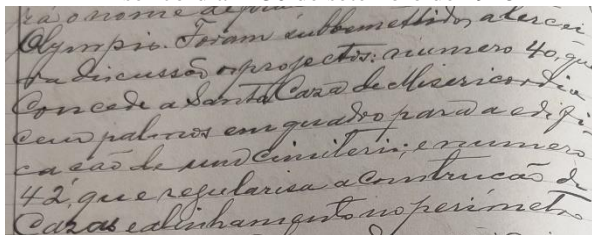 rá o nome
Olympio. Foram submettidos a tercei
ra discussão os projectos: numero 40, que
Concede a Santa Caza de Misericordia
cem palmos em quadro para a edifi
cação de um Cimiterio; e numero
42, que regularisa a Construcão de
Cazas e alinhamento no perímetro